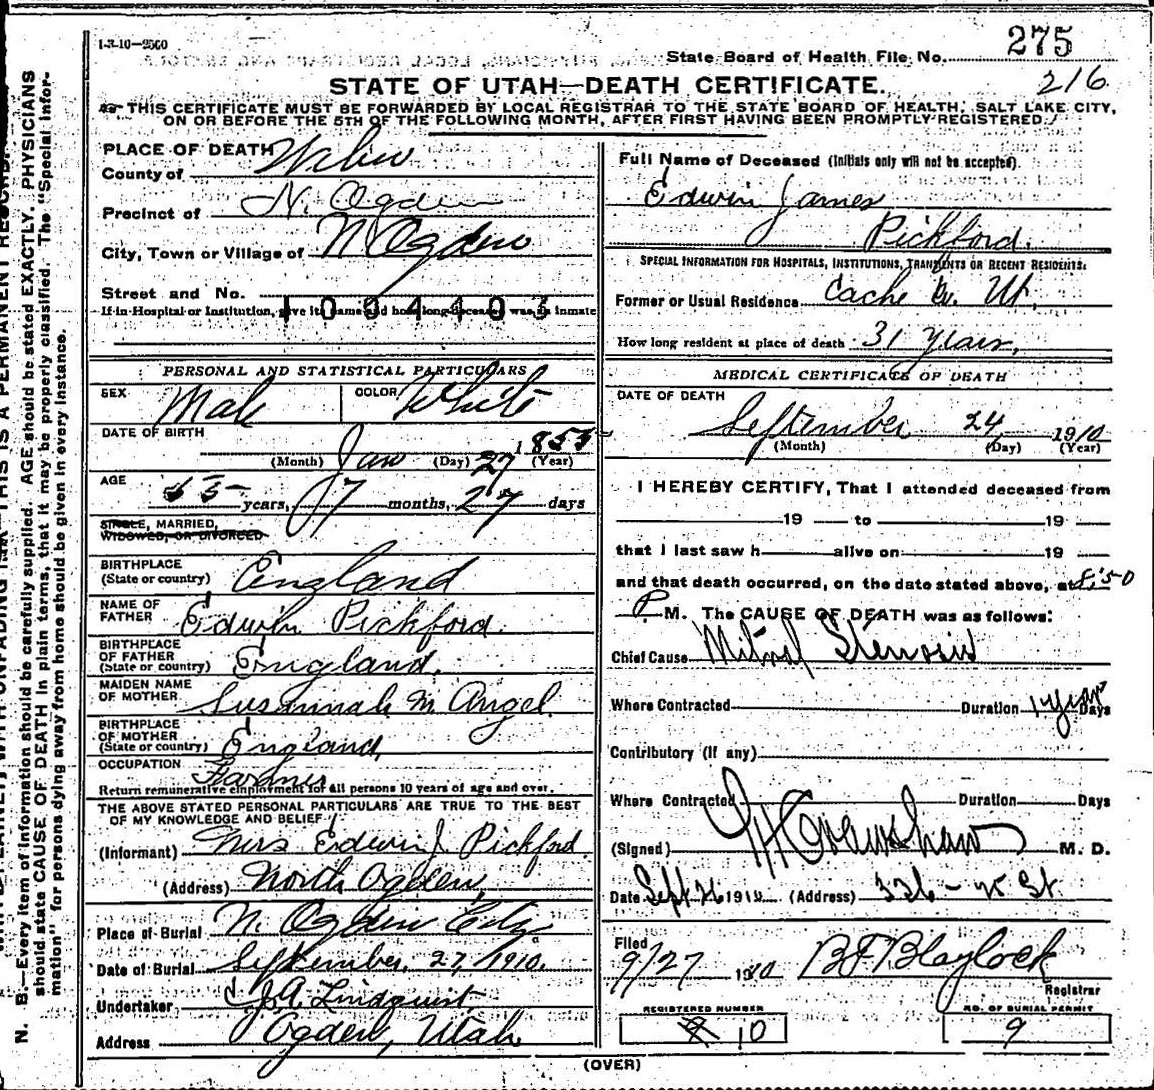 1-3-10—2500
State Board of Health File No. 275
216
STATE OF UTAH—DEATH CERTIFICATE.
THIS CERTIFICATE MUST BE FORWARDED BY LOCAL REGISTRAR TO THE STATE BOARD OF HEALTH, SALT LAKE CITY,
ON OR BEFORE THE 5TH OF THE FOLLOWING MONTH, AFTER FIRST HAVING BEEN PROMPTLY REGISTERED.
PLACE OF DEATH
County of Weber
Precinct of N. Ogden
City, Town or Village of N Ogden
Street and No.
If in Hospital or Institution, give its name and how long deceased was an inmate
PERSONAL AND STATISTICAL PARTICULARS
SEX Male COLOR White
DATE OF BIRTH
(Month) Jan (Day) 27 1853 (Year)
AGE
years, 7 months, 27 days
SINGLE, MARRIED,
WIDOWED, OR DIVORCED
BIRTHPLACE
(State or country) England
NAME OF
FATHER Edwin Pickford
BIRTHPLACE
OF FATHER
(State or country) England,
MAIDEN NAME
OF MOTHER Susannah M Angel
BIRTHPLACE
OF MOTHER
(State or country) England,
OCCUPATION
Return remunerative employment for all persons 10 years of age and over.
THE ABOVE STATED PERSONAL PARTICULARS ARE TRUE TO THE BEST
OF MY KNOWLEDGE AND BELIEF
(Informant) Mrs Edwin J. Pickford
(Address) North Ogden,
Place of Burial N. Ogden City
Date of Burial September, 27, 1910.
Undertaker J.A. Lindquist
Address Ogden, Utah
Full Name of Deceased (Initials only will not be accepted)
Edwin James
Pickford.
SPECIAL INFORMATION FOR HOSPITALS, INSTITUTIONS, TRANSIENTS OR RECENT RESIDENTS.
Former or Usual Residence Cache Co. Ut,
How long resident at place of death 31 Years,
MEDICAL CERTIFICATE OF DEATH
DATE OF DEATH
September 24 1910
(Month) (Day) (Year)
I HEREBY CERTIFY, That I attended deceased from
19 to 19
that I last saw h alive on 19
and that death occurred, on the date stated above, at 8:50
P. M. The CAUSE OF DEATH was as follows:
Chief Cause Mitral Stenosis
Where Contracted Duration 1 year Days
Contributory (If any)
Where Contracted Duration Days
(Signed) M. D.
Date Sept 26 1910 (Address) 326 - 25 St
Filed
9/27 1910 BF Blaylock
Registrar
REGISTERED NUMBER 10
NO. OF BURIAL PERMIT
9
(OVER)
N. B.—Every item of information should be carefully supplied. AGE should be stated EXACTLY. PHYSICIANS
should state CAUSE OF DEATH in plain terms, that it may be properly classified. The "Special Infor-
mation" for persons dying away from home should be given in every instance.